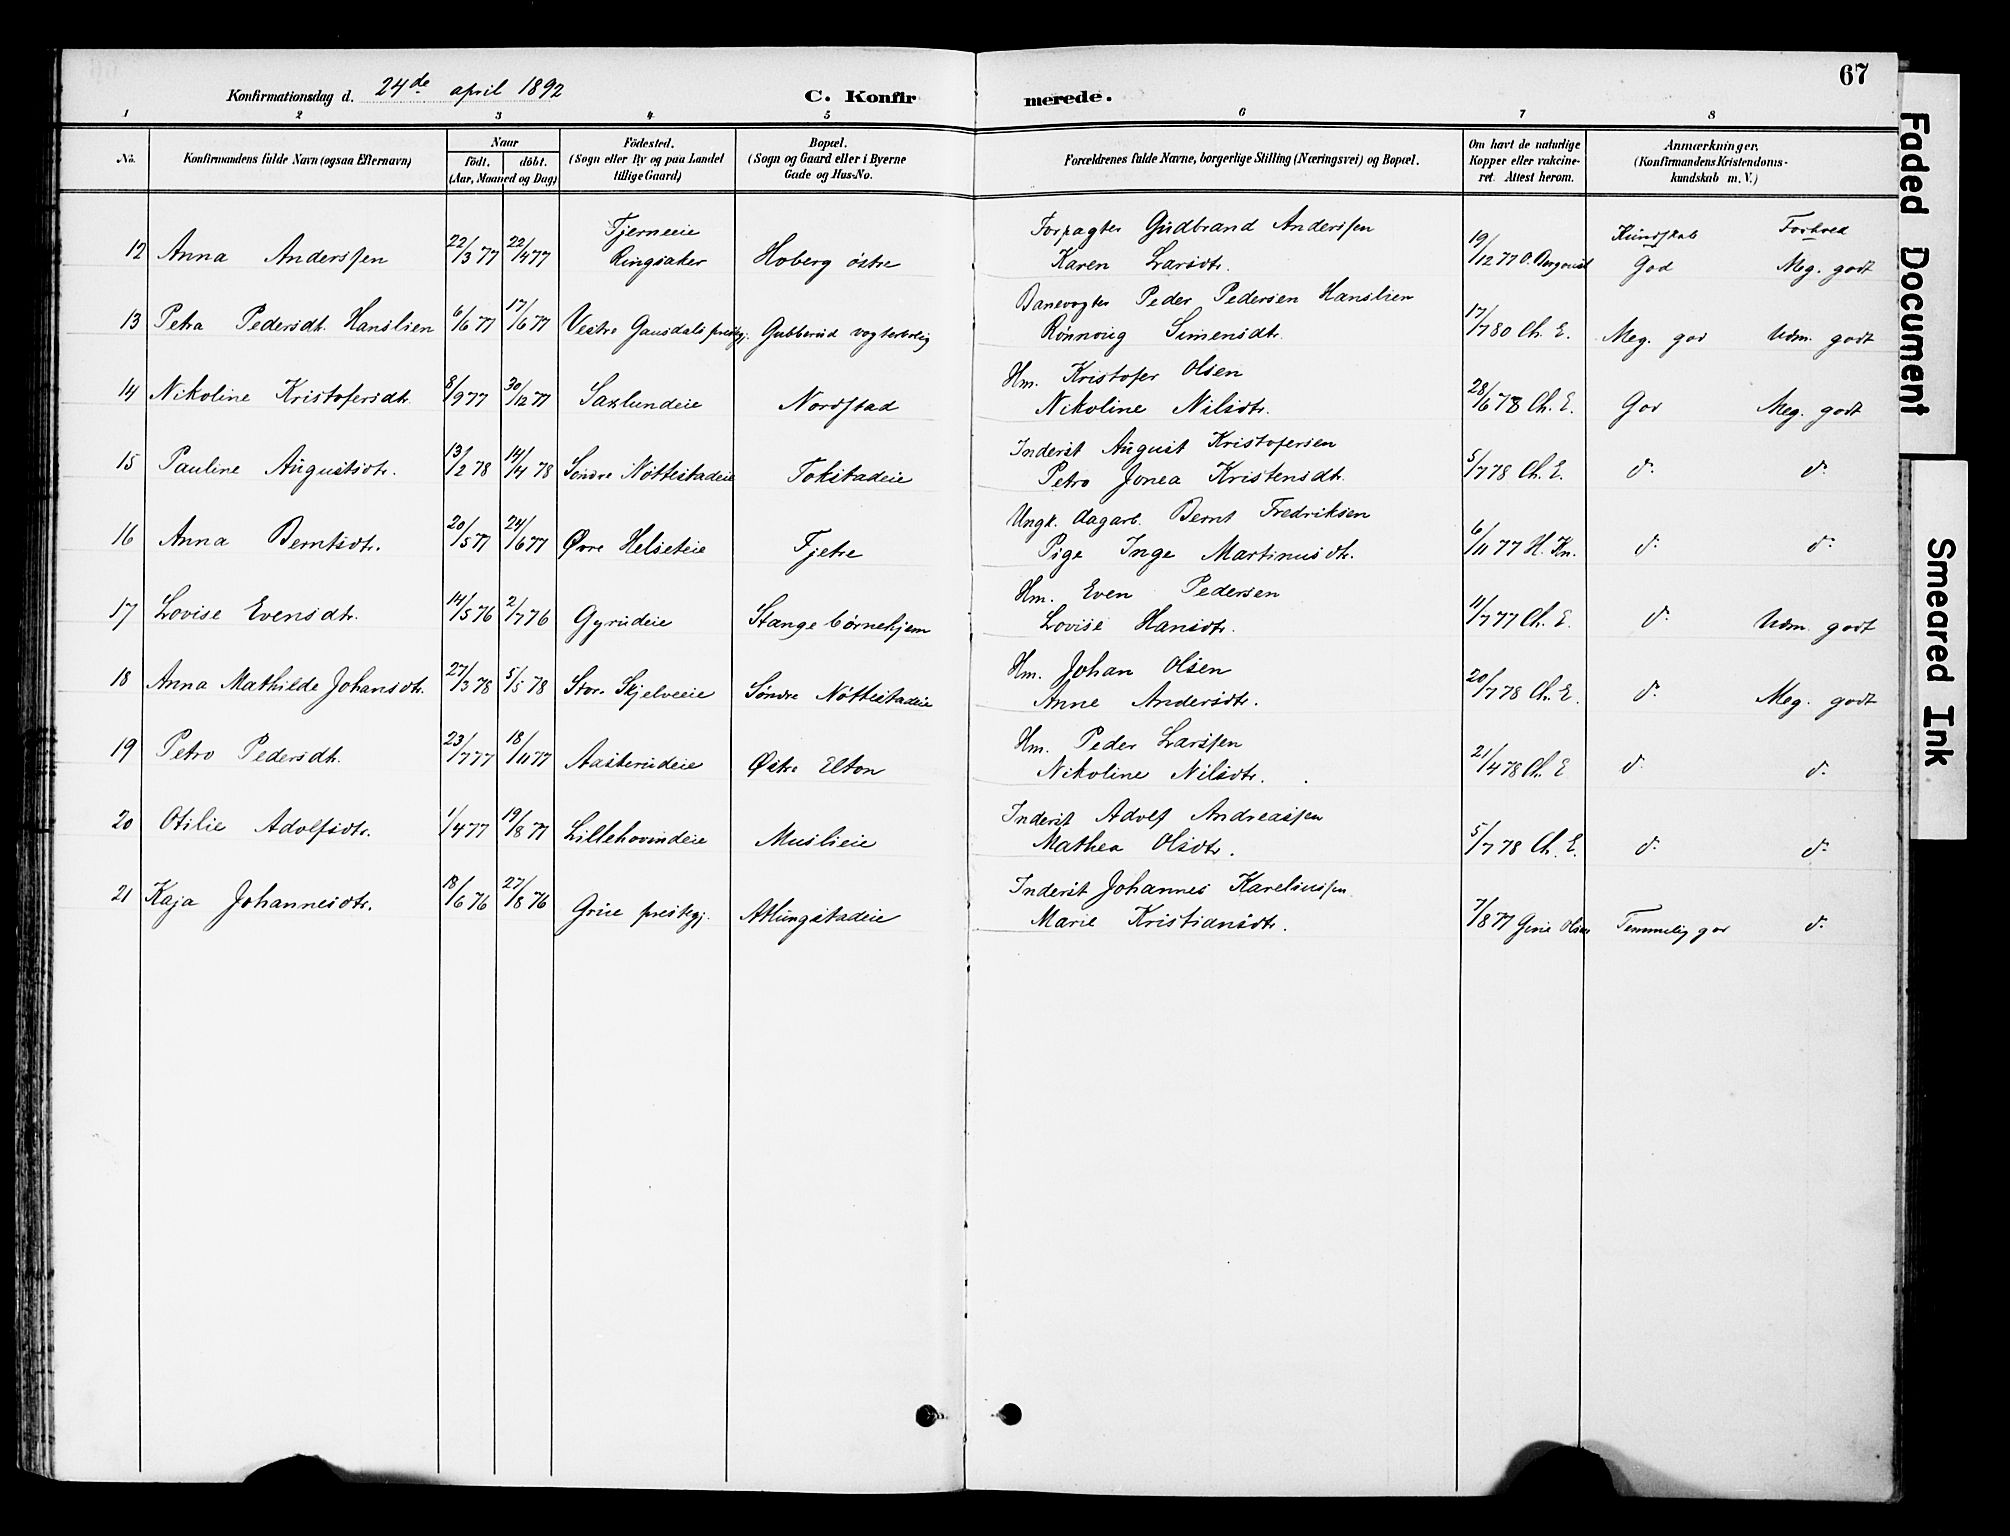 67
Konfirmationsdag d. 24de april 1892
C. Konfirmerede.
1 2 3 4 5 6 7 8
No. Konfirmandens fulde Navn (ogsaa Efternavn) Naar født. døbt. (Aar, Maaned og Dag) Fødested. (Sogn eller By og paa Landet tillige Gaard) Bopæl. (Sogn og Gaard eller i Byerne Gade og Hus-No. Forældrenes fulde Navne, borgerlige Stilling (Næringsvei) og Bopæl. Om havt de naturlige Kopper eller vakcineret. Attest herom. Anmærkninger. (Konfirmandens Kristendomskundskab m. V.)
Kundskab Forhold
12 Anna Anderssen 22/3 77 22/4 77 Tjerneeie Ringsaker Hoberg östre Forpagter Gudbrand Anderssen Karen Larsdtr. 19/12 77 O. Bergquist God Meg. godt
13 Petra Pedersdt. Hanslien 6/6 77 17/6 77 Vestre Gausdals prestegj. Gubberud vogterbolig Banevogter Peder Pedersen Hanslien Rønnoug Simensdtr. 17/7 80 Ch. E. Meg. god Udm. godt
14 Nikoline Kristofersdtr. 8/9 77 30/12 77 Saxlundeie Nordstad Hm. Kristofer Olsen Nikoline Nilsdtr. 28/6 78 Ch. E. God Meg. godt
15 Pauline Augustsdtr. 13/2 78 14/4 78 Söndre Nöttestadeie Tokstadeie Inderst August Kristofersen Petro Jonea Kristensdtr. 5/7 78 Ch. E. d. d.
16 Anna Berntsdtr. 20/5 77 24/6 77 Øvre Helseteie Fjetre Ungk. dagarb. Bernt Fredriksen Pige Inge Martinusdtr. 6/11 77 H. Kn. d. d.
17 Lovise Evensdtr. 14/5 76 2/7 76 Gyrudeie Stange börnehjem Hm. Even Pedersen Lovise Hansdtr. 11/7 77 Ch. E. d. Udm. godt
18 Anna Mathilde Johansdtr. 27/3 78 5/5 78 Store Skjelveeie Söndre Nöttestadeie Hm. Johan Olsen Anne Andersdtr. 20/7 78 Ch. E. d. Meg. godt
19 Petro Pedersdtr. 23/7 77 18/11 77 Aasterudeie Østre Elton Hm. Peder Larssen Nikoline Nilsdtr. 21/4 78 Ch. E d. d.
20 Otilie Adolfsdtr. 1/4 77 19/8 77 Lillehovindeie Muslieie Inderst Adolf Andreassen Mathea Olsdtr. 5/7 78 Ch. E. d. d.
21 Kaja Johannesdtr. 18/6 76 27/8 76 Grue prestegj. Atlungstadeie Inderst Johannes Kareliussen Marie Kristiansdtr. 7/8 77 Gine Olsen Temmelig god d.
Faded Document
Smeared Ink